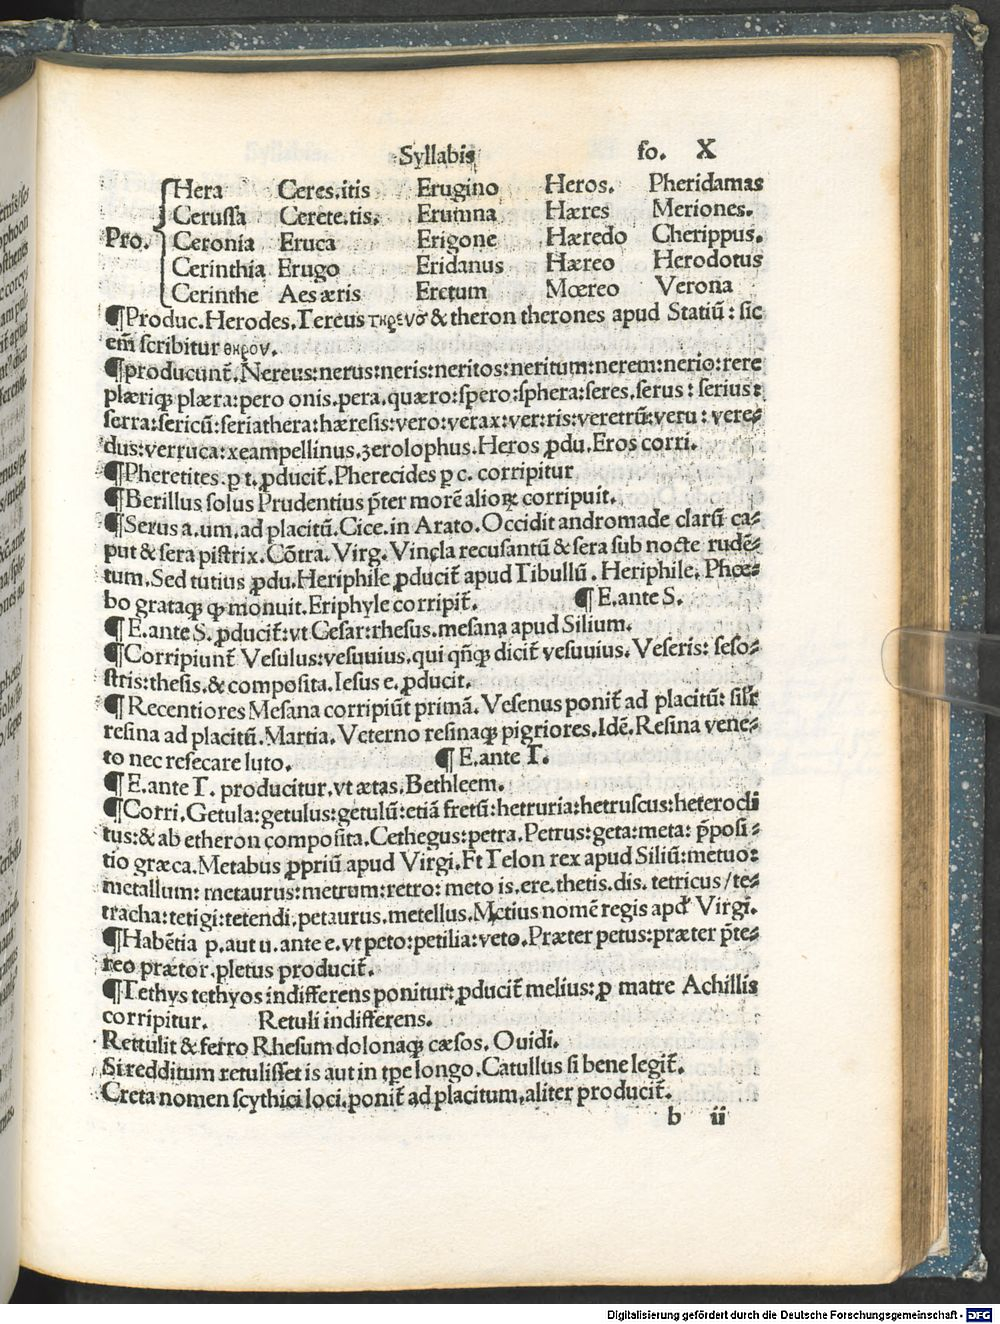 Syllabis fo. X
Hera Ceres.itis Erugino Heros. Pheridamas
Cerussa Cerete.tis. Erumna Hæres Meriones.
Pro. Ceronia Eruca Erigone Hæredo Cherippus.
Cerinthia Erugo Eridanus Hæreo Herodotus
Cerinthe Aes æris Erctum Mœreo Verona
¶Produc.Herodes.Tereus τηρευσ & theron therones apud Statiū: sic
em̄ scribitur θηρου.
¶producunt̄.Nereus:nerus:neris:neritos:neritum:nerem:nerio:rere
plæriqꝫ plæra:pero onis.pera.quæro:spero:sphera:seres.serus: serius:
serra:sericū:seriathera:hæresis:vero:verax:ver:ris:veretrū:veru: vere⸗
dus:verruca:xeampellinus.zerolophus.Heros ꝓdu.Eros corri.
¶Pheretites.p t.ꝓducit̄.Pherecides p c. corripitur
¶Berillus solus Prudentius p̄ter morē alioꝝ corripuit.
¶Serus a.um.ad placitū.Cice.in Arato.Occidit andromade clarū ca⸗
put & sera pistrix.Cōtra.Virg.Vincla recusantū & sera sub nocte rudē⸗
tum.Sed tutius ꝓdu.Heriphile ꝓducit̄ apud Tibullū. Heriphile. Phœ⸗
bo grataqꝫ qꝫ monuit.Eriphyle corripit̄. ¶E.ante S.
¶E.ante S.ꝓducit̄:vt Cesar:rhesus.mesana apud Silium.
¶Corripiunt̄ Vesulus:vesuuius.qui qn̄qꝫ dicit̄ vesuuius.Veseris: seso⸗
stris:thesis.& composita.Iesus e.ꝓducit.
¶Recentiores Mesana corripiūt primā.Vesenus ponit̄ ad placitū: silr̄
resina ad placitū.Martia.Veterno resinaqꝫ pigriores.Idē.Resina vene⸗
to nec resecare luto. ¶E.ante T.
¶E.ante T. producitur.vt ætas.Bethleem.
¶Corri.Getula:getulus:getulū:etiā fretū:hetruria:hetruscus:heterocli
tus:& ab etheron composita.Cethegus:petra.Petrus:geta:meta: p̄posi⸗
tio græca.Metabus ꝓpriū apud Virgi.Et Telon rex apud Siliū:metuo:
metallum: metaurus:metrum:retro: meto is.ere.thetis.dis. tetricus/te⸗
tracha:tetigi:tetendi.petaurus.metellus.Metius nomē regis apd̄ Virgi.
¶Habētia p.aut u.ante e.vt peto:petilia:veto.Præter petus:præter p̄te⸗
reo prætor.pletus producit̄.
¶Tethys tethyos indifferens ponitur:ꝓducit̄ melius:p matre Achillis
corripitur. Retuli indifferens.
Rettulit & ferro Rhesum dolonaqꝫ cæsos. Ouidi.
Si redditum retulisset is aut in tp̄e longo.Catullus si bene legit̄.
Creta nomen scythici loci.ponit̄ ad placitum.aliter producit̄.
b ii
Digitalisierung gefördert durch die Deutsche Forschungsgemeinschaft - DFG